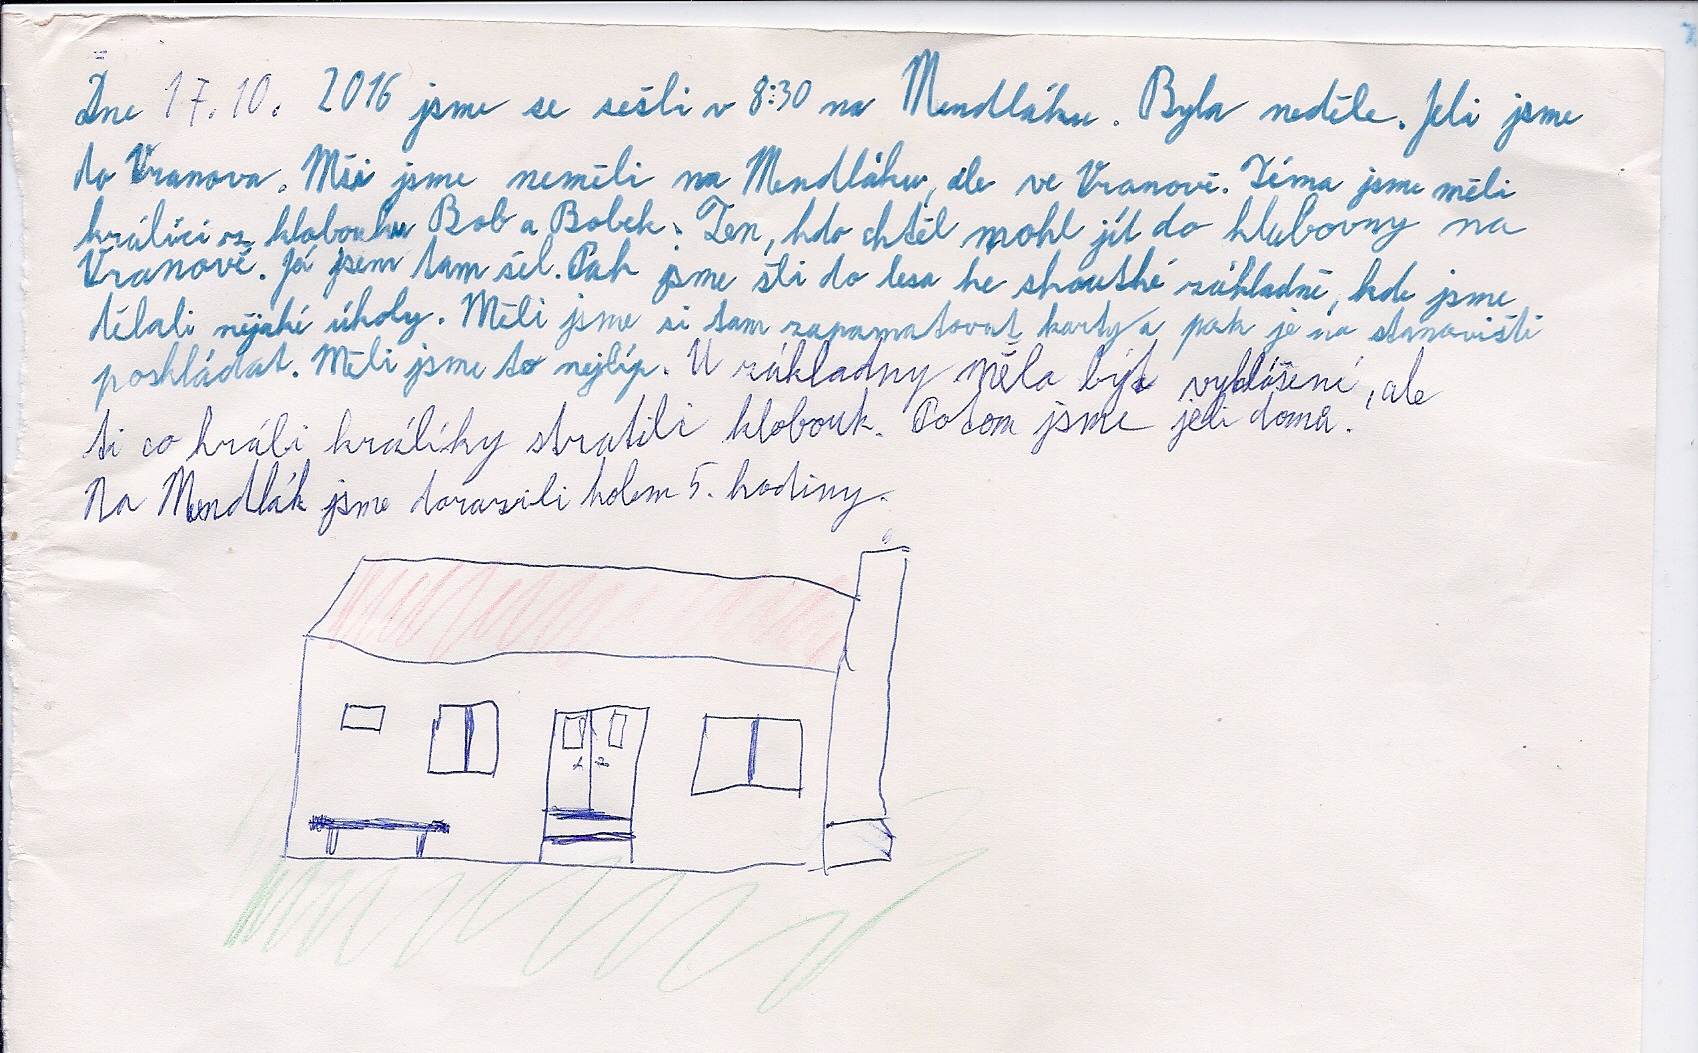 Dne 17.10. 2016 jsme se sešli v 8:30 na Mendláku. Byla neděle. Jeli jsme
do Vranova. Mši jsme neměli na Mendláku, ale ve Vranově. Téma jsme měli
králíci z klobouku Bob a Bobek. Ten, kdo chtěl mohl jít do klubovny na
Vranově. Já jsem tam šel. Pak jsme šli do lesa ke skautské základně, kde jsme
dělali nějaké úkoly. Měli jsme si tam zapamatovat karty a pak je na stanovišti
poskládat. Měli jsme to nejlíp. U základny měla být vyhlášení, ale
ti co hráli králíky stratili klobouk. Potom jsme jeli domů.
Na Mendlák jsme dorazili kolem 5. hodiny.